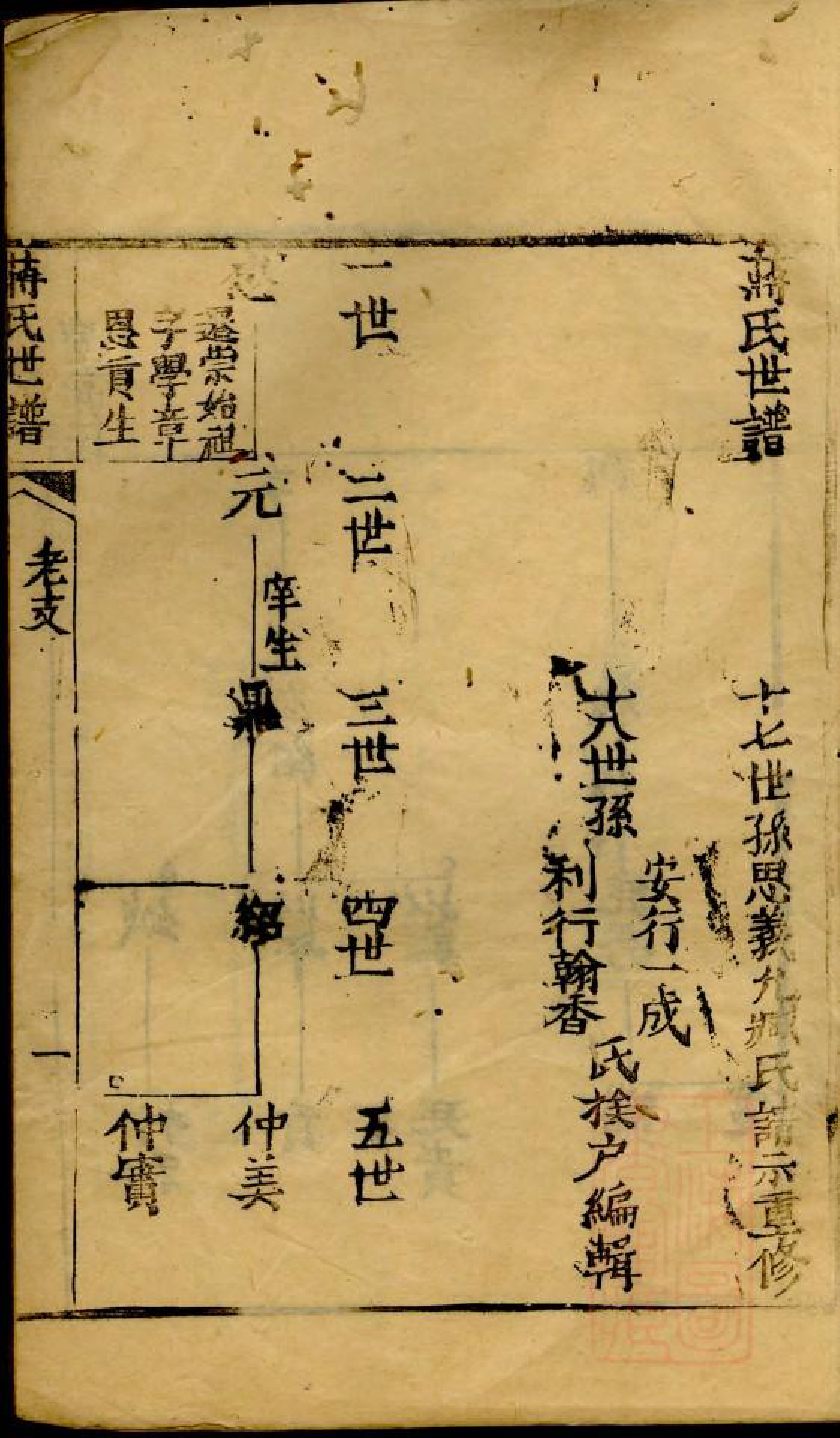 蔣氏世譜
十七世孫思義允臧氏諱示重修
十八世孫
安行一成
利行翰香
氏族户編輯
一世
二世
三世
四世
五世
遷崇始祖
字學章
恩貢生
元
庠生
鼎
紹
仲美
仲實
蔣氏世譜
老支
一